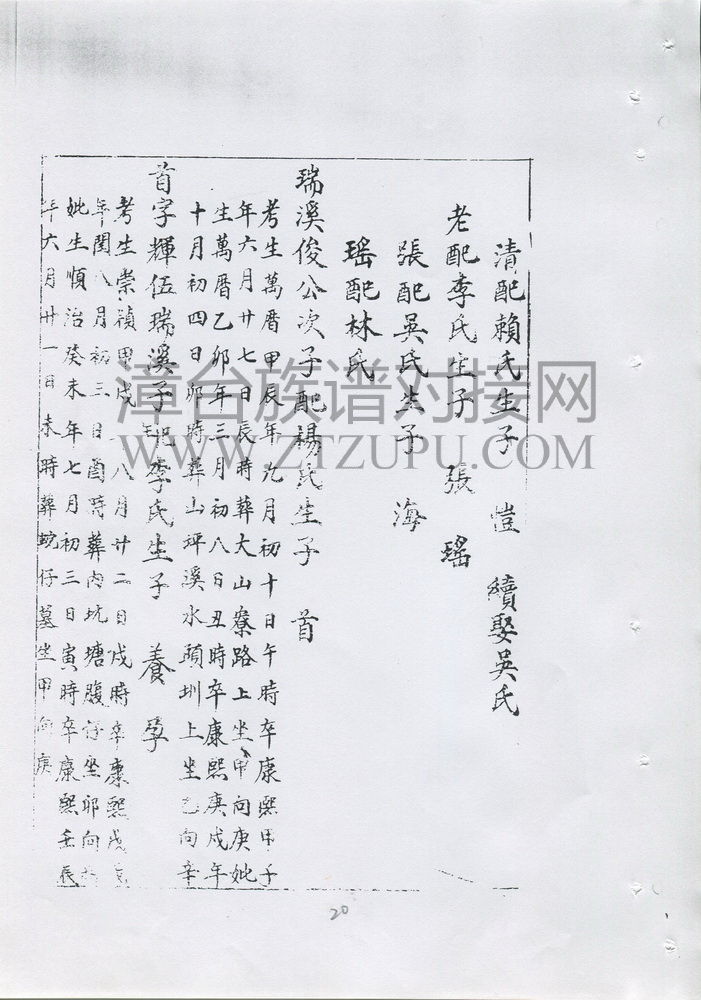 清配賴氏生子 愷 續娶吳氏
老配李氏生子 張 瑤
張配吳氏生子 海
瑶配林氏
瑞溪俊公次子配楊氏生子 首
考生萬曆甲辰年九月初十日午時卒康熙甲子
年六月廿七日辰時葬大山寮路上坐甲向庚妣
生萬曆乙卯年三月初八日丑時卒康熙庚戌年
十月初四日卯時葬山坪溪水頭圳上坐乙向辛
首字輝伍瑞溪子配李氏生子 養 孚
考生崇禎甲戌 八月廿二日戌時卒康熙戊
年閏八月初三日酉時葬内坑塘腹仔坐卯向
妣生順治癸未年七月初三日寅時卒康熙壬辰
年六月廿一日未時葬坑仔墓坐甲向庚
漳台族谱对接网
WWW.ZTZUPU.COM
20